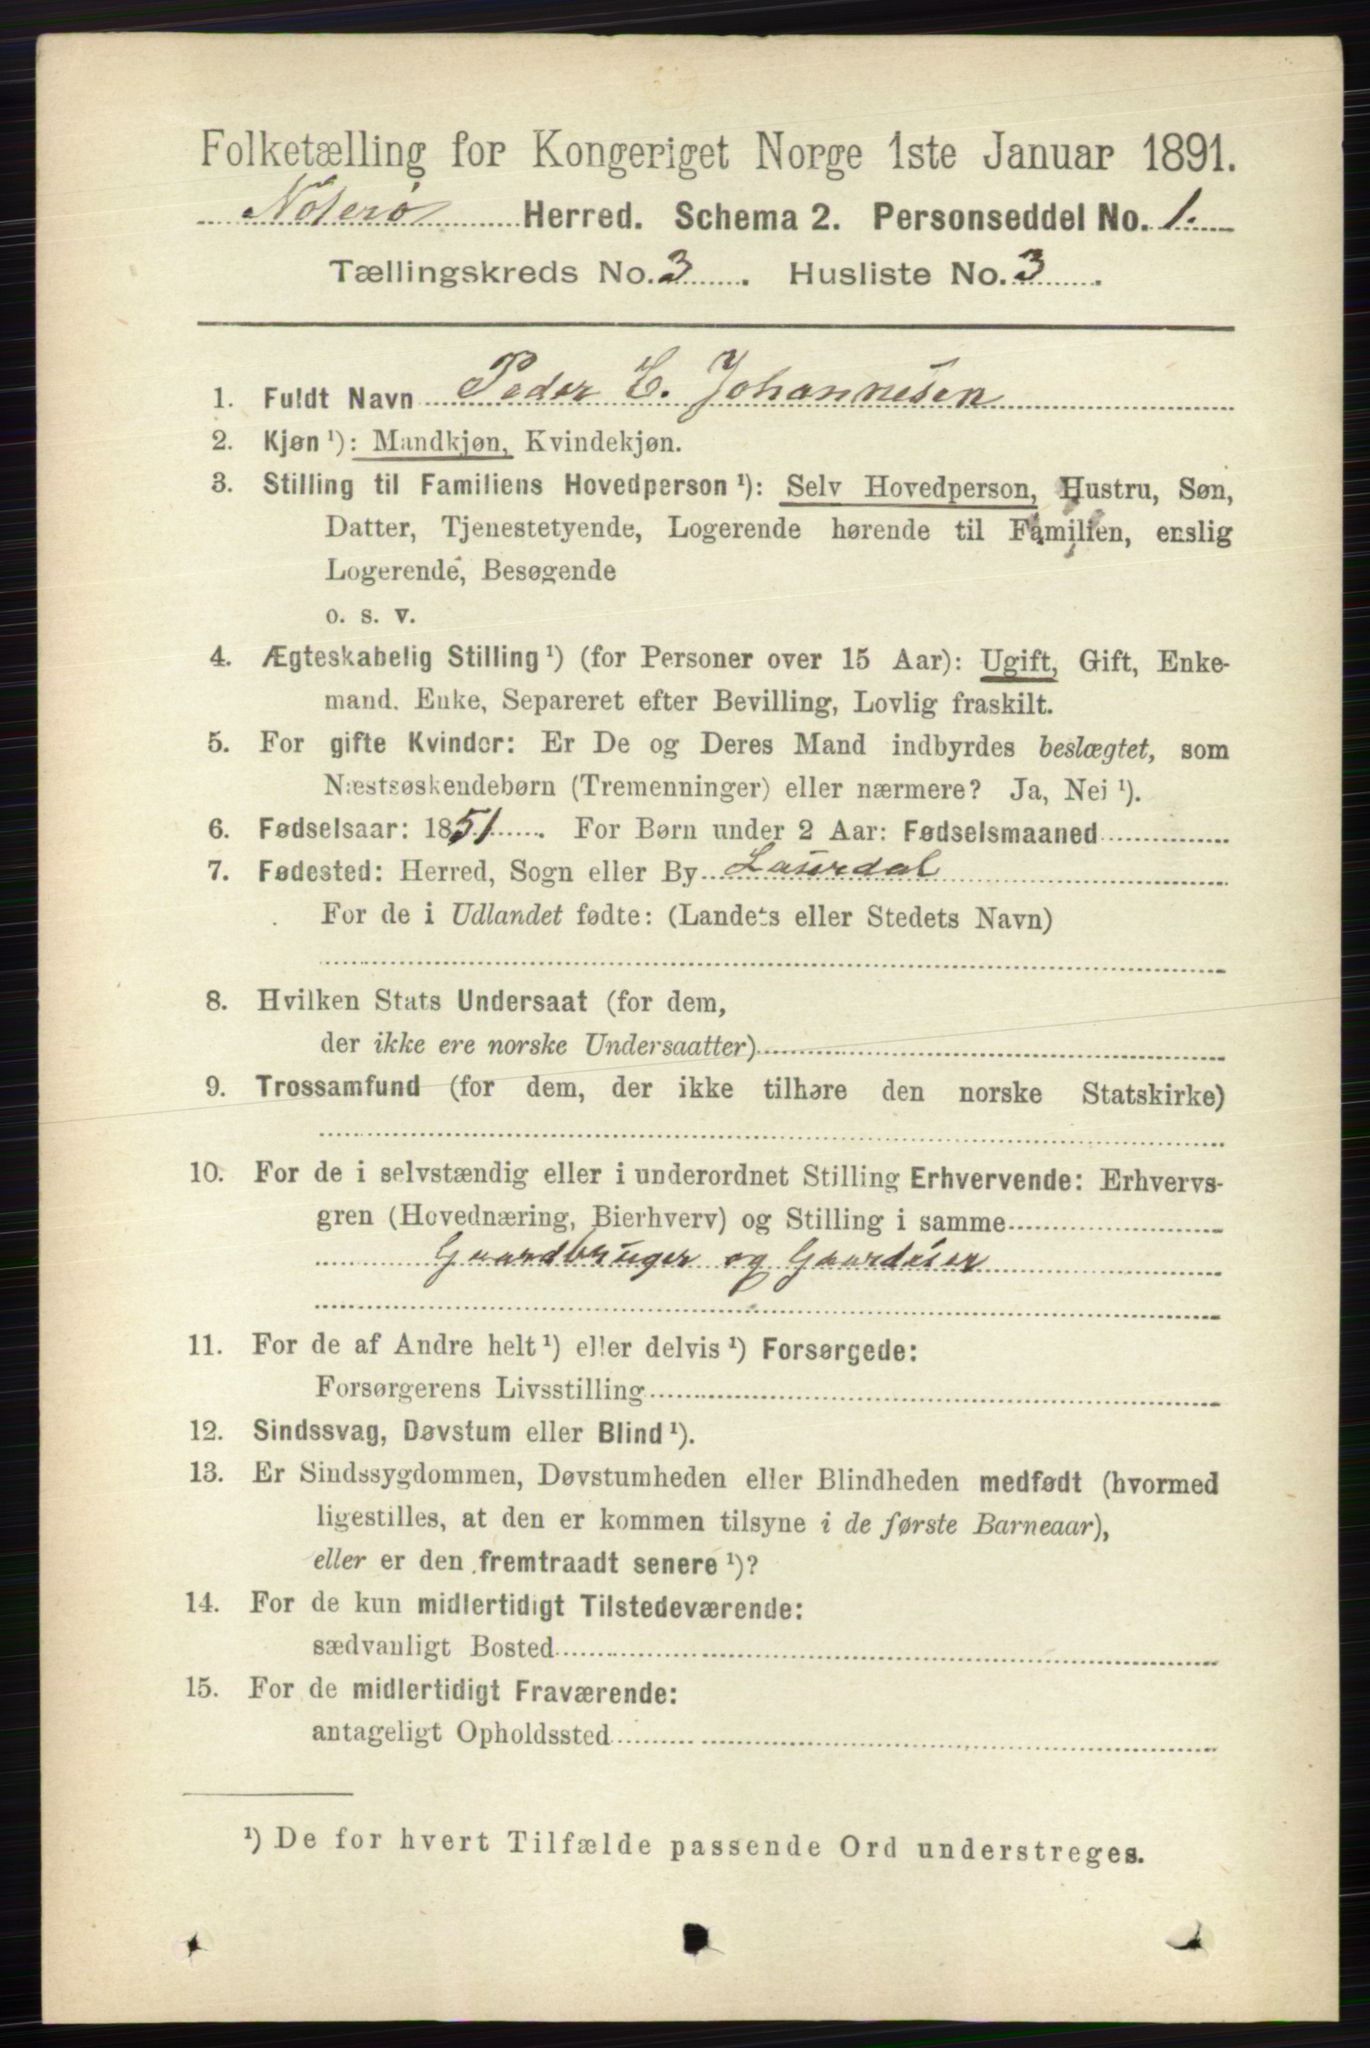 Folketælling for Kongeriget Norge 1ste Januar 1891.
Nøterø Herred. Schema 2. Personseddel No. 1.
Tællingskreds No. 3. Husliste No. 3.
1. Fuldt Navn Peder C. Johannesen
2. Kjøn ¹): Mandkjøn, Kvindekjøn.
3. Stilling til Familiens Hovedperson ¹): Selv Hovedperson, Hustru, Søn,
Datter, Tjenestetyende, Logerende hørende til Familien, enslig
Logerende, Besøgende
o. s. v.
4. Ægteskabelig Stilling ¹) (for Personer over 15 Aar): Ugift, Gift, Enke-
mand. Enke, Separeret efter Bevilling, Lovlig fraskilt.
5. For gifte Kvinder: Er De og Deres Mand indbyrdes beslægtet, som
Næstsøskendebørn (Tremenninger) eller nærmere? Ja, Nei ¹).
6. Fødselsaar: 1851. For Børn under 2 Aar: Fødselsmaaned
7. Fødested: Herred, Sogn eller By Laurdal
For de i Udlandet fødte: (Landets eller Stedets Navn)
8. Hvilken Stats Undersaat (for dem,
der ikke ere norske Undersaatter)
9. Trossamfund (for dem, der ikke tilhøre den norske Statskirke)
10. For de i selvstændig eller i underordnet Stilling Erhvervende: Erhvervs-
gren (Hovednæring, Bierhverv) og Stilling i samme
Gaardbruger og Gaardeier
11. For de af Andre helt ¹) eller delvis ¹) Forsørgede:
Forsørgerens Livsstilling
12. Sindssvag, Døvstum eller Blind ¹).
13. Er Sindssygdommen, Døvstumheden eller Blindheden medfødt (hvormed
ligestilles, at den er kommen tilsyne i de første Barneaar),
eller er den fremtraadt senere ¹)?
14. For de kun midlertidigt Tilstedeværende:
sædvanligt Bosted
15. For de midlertidigt Fraværende:
antageligt Opholdssted
¹) De for hvert Tilfælde passende Ord understreges.